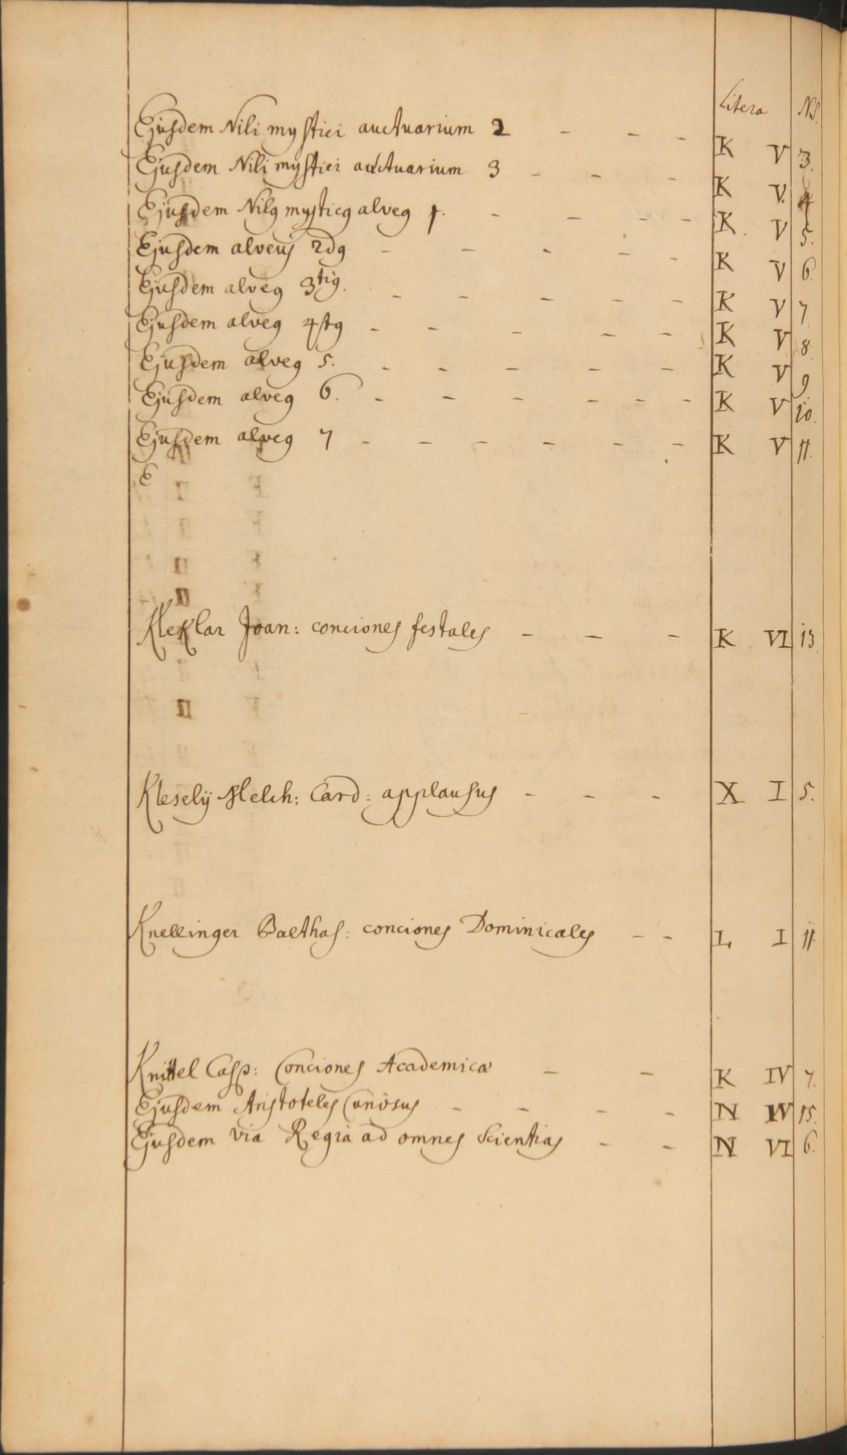 Litera N9.
Ejusdem Nili mystici auctuarium 2 - - - K V 3.
Ejusdem Nili mystici auctuarium 3 - - - K V. 4
Ejusdem Nilus mysticus alveus 1. - - - - K. V 5.
Ejusdem alveus 2dus - - - - - K V 6
Ejusdem alveus 3tius. - - - - - K V 7
Ejusdem alveus 4tus - - - - - K V 8.
Ejusdem alveus 5. - - - - - K V 9
Ejusdem alveus 6. - - - - - - K V 10.
Ejusdem alveus 7 - - - - - - K V 11.
E
Kleklar Joan: conciones festales - - - K VI 13.
Klesely Melch: Card: applausus - - - X I 5.
Knellinger Balthas: conciones Dominicales - - L I 11
Knittel Casp: Conciones Academicæ - - K IV 7.
Ejusdem Aristoteles Curiosus - - - - N IV 15.
Ejusdem via Regia ad omnes Scientias - - N VI 6.